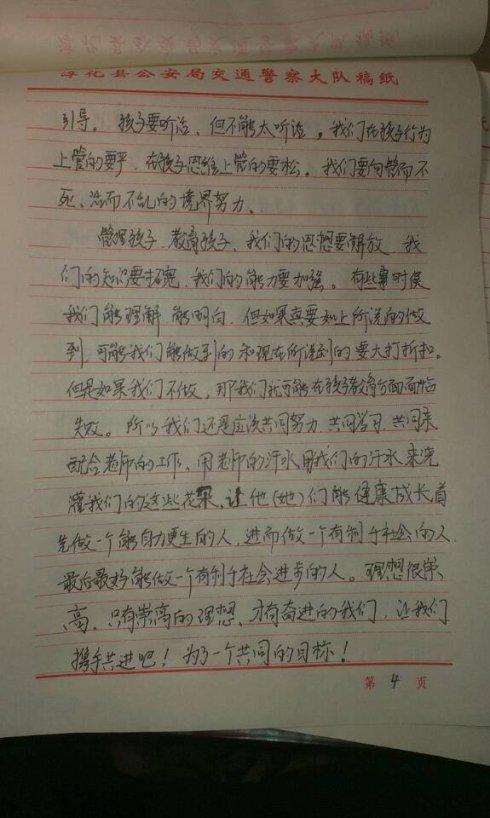 淳化县公安局交通警察大队稿纸
引导。孩子要听话、但不能太听话。我们在孩子行为
上管的要严,在孩子思维上管的要松。我们要向管而不
死、活而不乱的境界努力。
管理孩子、教育孩子、我们的思想要解放 我
们的知识要拓宽,我们的能力要加强。有些事时侯
我们能理解 能明白,但如果真要如上所说的做
到,可能我们能做到的和现在所说到的要大打折扣。
但是如果我们不做,那我们就可能在孩子教育方面面临
失败。所以我们还是应该共同努力 共同学习 共同来
配合老师的工作,用老师的汗水用我们的汗水来浇
灌我们的这些花果,让他(她)们能健康成长,首
先做一个能自力更生的人,进而做一个有利于社会的人
最后最好能做一个有利于社会进步的人。理想很崇
高,只有崇高的理想,才有奋进的我们,让我们
携手共进吧!为了一个共同的目标!
第 4 页